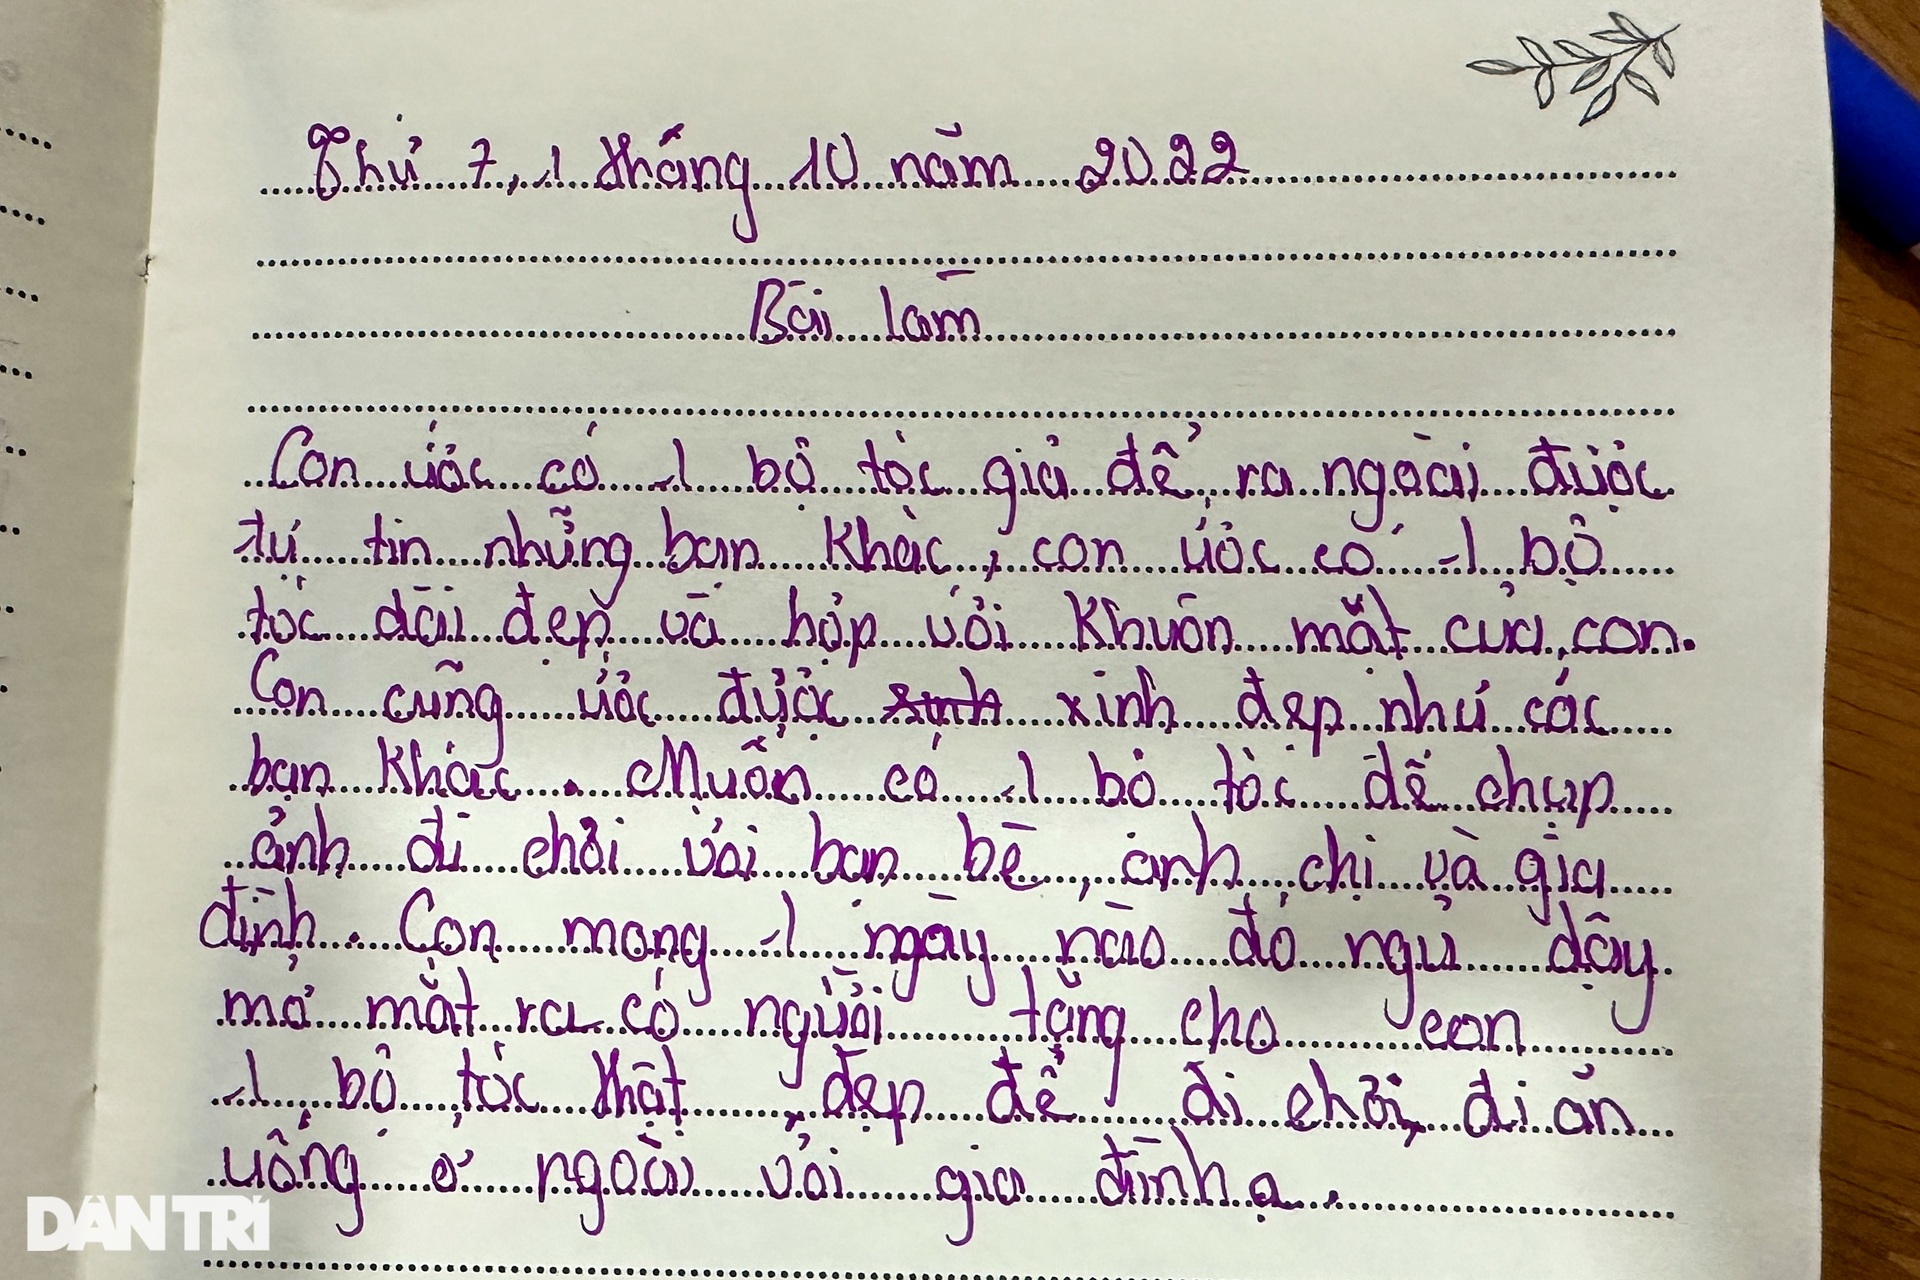 Thứ 7, 1 tháng 10 năm 2022
Bài làm
Con ước có 1 bộ tóc giả để ra ngoài được
tự tin những bạn khác, con ước có 1 bộ
tóc dài đẹp và hợp với khuôn mặt của con.
Con cũng ước được sinh xinh đẹp như các
bạn khác. Muốn có 1 bộ tóc để chụp
ảnh đi chơi với bạn bè, anh, chị và gia
đình. Con mong 1 ngày nào đó ngủ dậy
mở mắt ra có người tặng cho con
1 bộ tóc thật đẹp để đi chơi, đi ăn
uống ở ngoài với gia đình ạ.
DÂN TRÍ